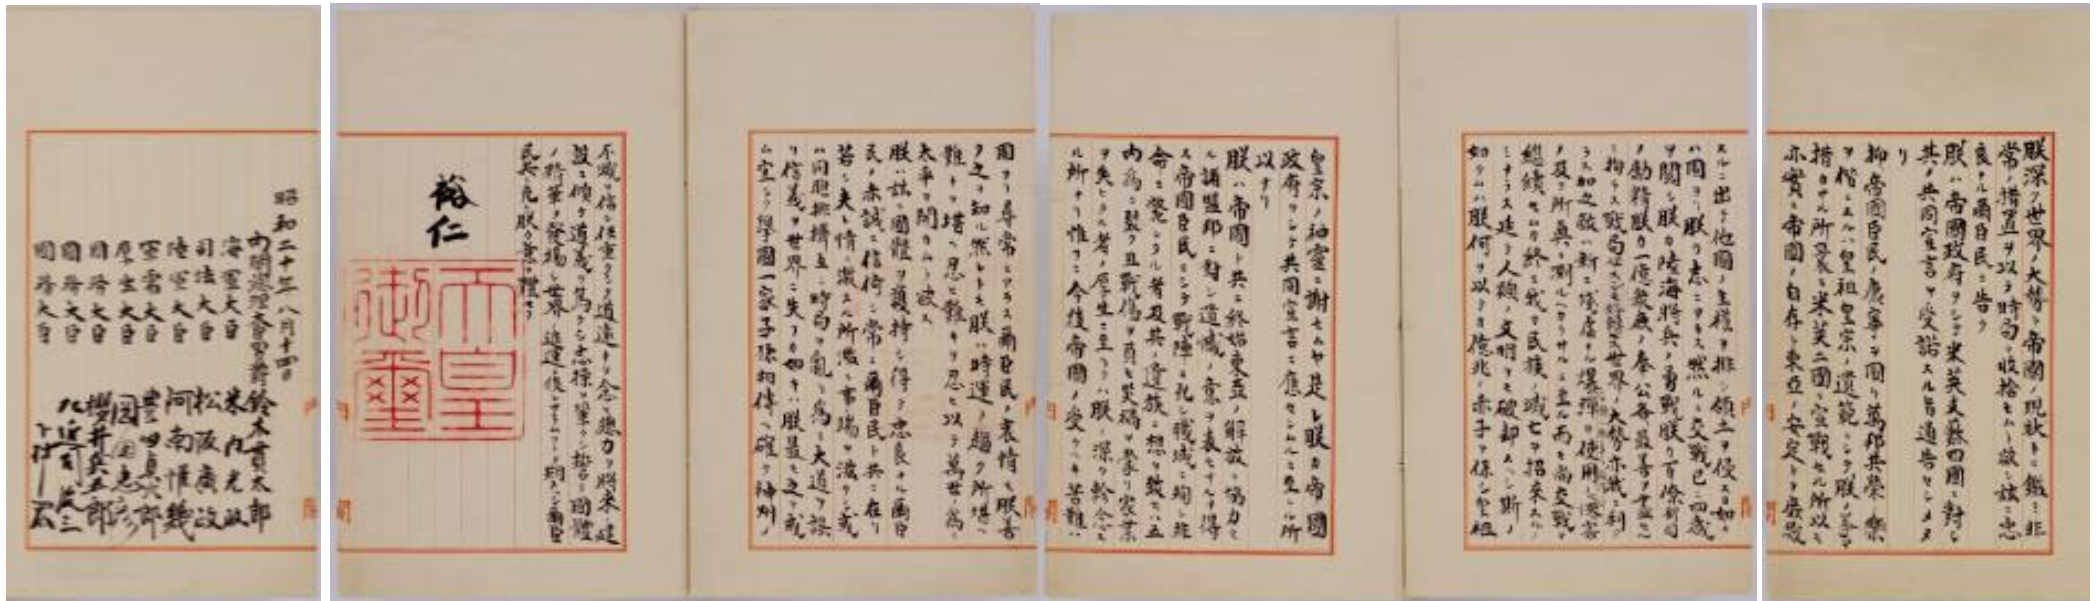 朕深ク世界ノ大勢ト帝國ノ現狀トニ鑑ミ非
常ノ措置ヲ以テ時局ヲ收拾セムト欲シ茲ニ忠
良ナル爾臣民ニ告ク
朕ハ帝國政府ヲシテ米英支蘇四國ニ對シ
其ノ共同宣言ヲ受諾スル旨通告セシメタ
リ
抑〻帝國臣民ノ康寧ヲ圖リ萬邦共榮ノ樂
ヲ偕ニスルハ皇祖皇宗ノ遺範ニシテ朕ノ拳々
措カサル所曩ニ米英二國ニ宣戰セル所以モ
亦實ニ帝國ノ自存ト東亞ノ安定トヲ庶幾
スルニ出テ他國ノ主權ヲ排シ領土ヲ侵スカ如キ
ハ固ヨリ朕カ志ニアラス然ルニ交戰已ニ四歲
ヲ閱シ朕カ陸海將兵ノ勇戰朕カ百僚有司
ノ勵精朕カ一億衆庶ノ奉公各〻最善ヲ盡セル
ニ拘ラス戰局必スシモ好轉セス世界ノ大勢亦我ニ利
アラス加之敵ハ新ニ殘虐ナル爆彈ヲ使用シテ慘害
ノ及フ所眞ニ測ルヘカラサルニ至ル而モ尚交戰ヲ
繼續セムカ終ニ我カ民族ノ滅亡ヲ招來スルノ
ミナラス延テ人類ノ文明ヲモ破却スヘシ斯ノ
如クムハ朕何ヲ以テカ億兆ノ赤子ヲ保シ皇祖
皇宗ノ神靈ニ謝セムヤ是レ朕カ帝國
政府ヲシテ共同宣言ニ應セシムルニ至レル所
以ナリ
朕ハ帝國ト共ニ終始東亞ノ解放ニ協力セ
ル諸盟邦ニ對シ遺憾ノ意ヲ表セサルヲ得
ス帝國臣民ニシテ戰陣ニ死シ職域ニ殉シ非
命ニ斃レタル者及其ノ遺族ニ想ヲ致セハ五
內爲ニ裂ク且戰傷ヲ負ヒ災禍ヲ蒙リ家業
ヲ失ヒタル者ノ厚生ニ至リテハ朕ノ深ク軫念ス
ル所ナリ惟フニ今後帝國ノ受クヘキ苦難ハ
固ヨリ尋常ニアラス爾臣民ノ衷情モ朕善
ク之ヲ知ル然レトモ朕ハ時運ノ趨ク所堪ヘ
難キヲ堪ヘ忍ヒ難キヲ忍ヒ以テ萬世ノ爲ニ
太平ヲ開カムト欲ス
朕ハ茲ニ國體ヲ護持シ得テ忠良ナル爾臣
民ノ赤誠ニ信倚シ常ニ爾臣民ト共ニ在リ
若シ夫レ情ノ激スル所濫ニ事端ヲ滋クシ或
ハ同胞排擠互ニ時局ヲ亂リ爲ニ大道ヲ誤
リ信義ヲ世界ニ失フカ如キハ朕最モ之ヲ戒
ム宜シク擧國一家子孫相傳ヘ確ク神州ノ
不滅ヲ信シ任重クシテ道遠キヲ念ヒ總力ヲ將來ノ建
設ニ傾ケ道義ヲ篤クシ志操ヲ鞏クシ誓テ國體
ノ精華ヲ發揚シ世界ノ進運ニ後レサラムコトヲ期スヘシ爾臣
民其レ克ク朕カ意ヲ體セヨ
裕仁
天皇
御璽
昭和二十年八月十四日
內閣總理大臣男爵 鈴木貫太郎
海軍大臣 米內光政
司法大臣 松阪廣政
陸軍大臣 阿南惟幾
軍需大臣 豐田貞次郎
厚生大臣 岡田忠彥
國務大臣 櫻井兵五郎
國務大臣 左近司政三
國務大臣 下村宏